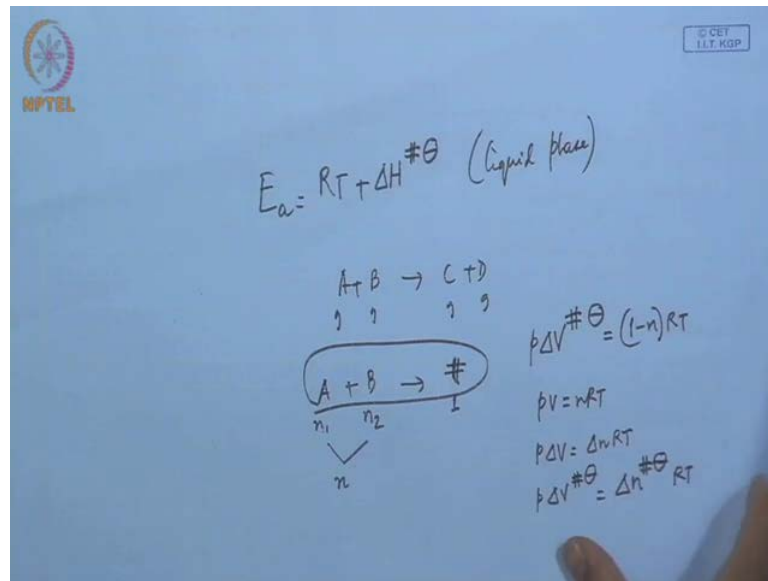 © CET
I.I.T. KGP
NPTEL
Eₐ = RT + ΔH^#⊖ (liquid phase)
A + B → C + D
g g g g
A + B → #
n₁ n₂ 1
n
pΔV^#⊖ = (1-n)RT
pV = nRT
pΔV = ΔnRT
pΔV^#⊖ = Δn^#⊖ RT